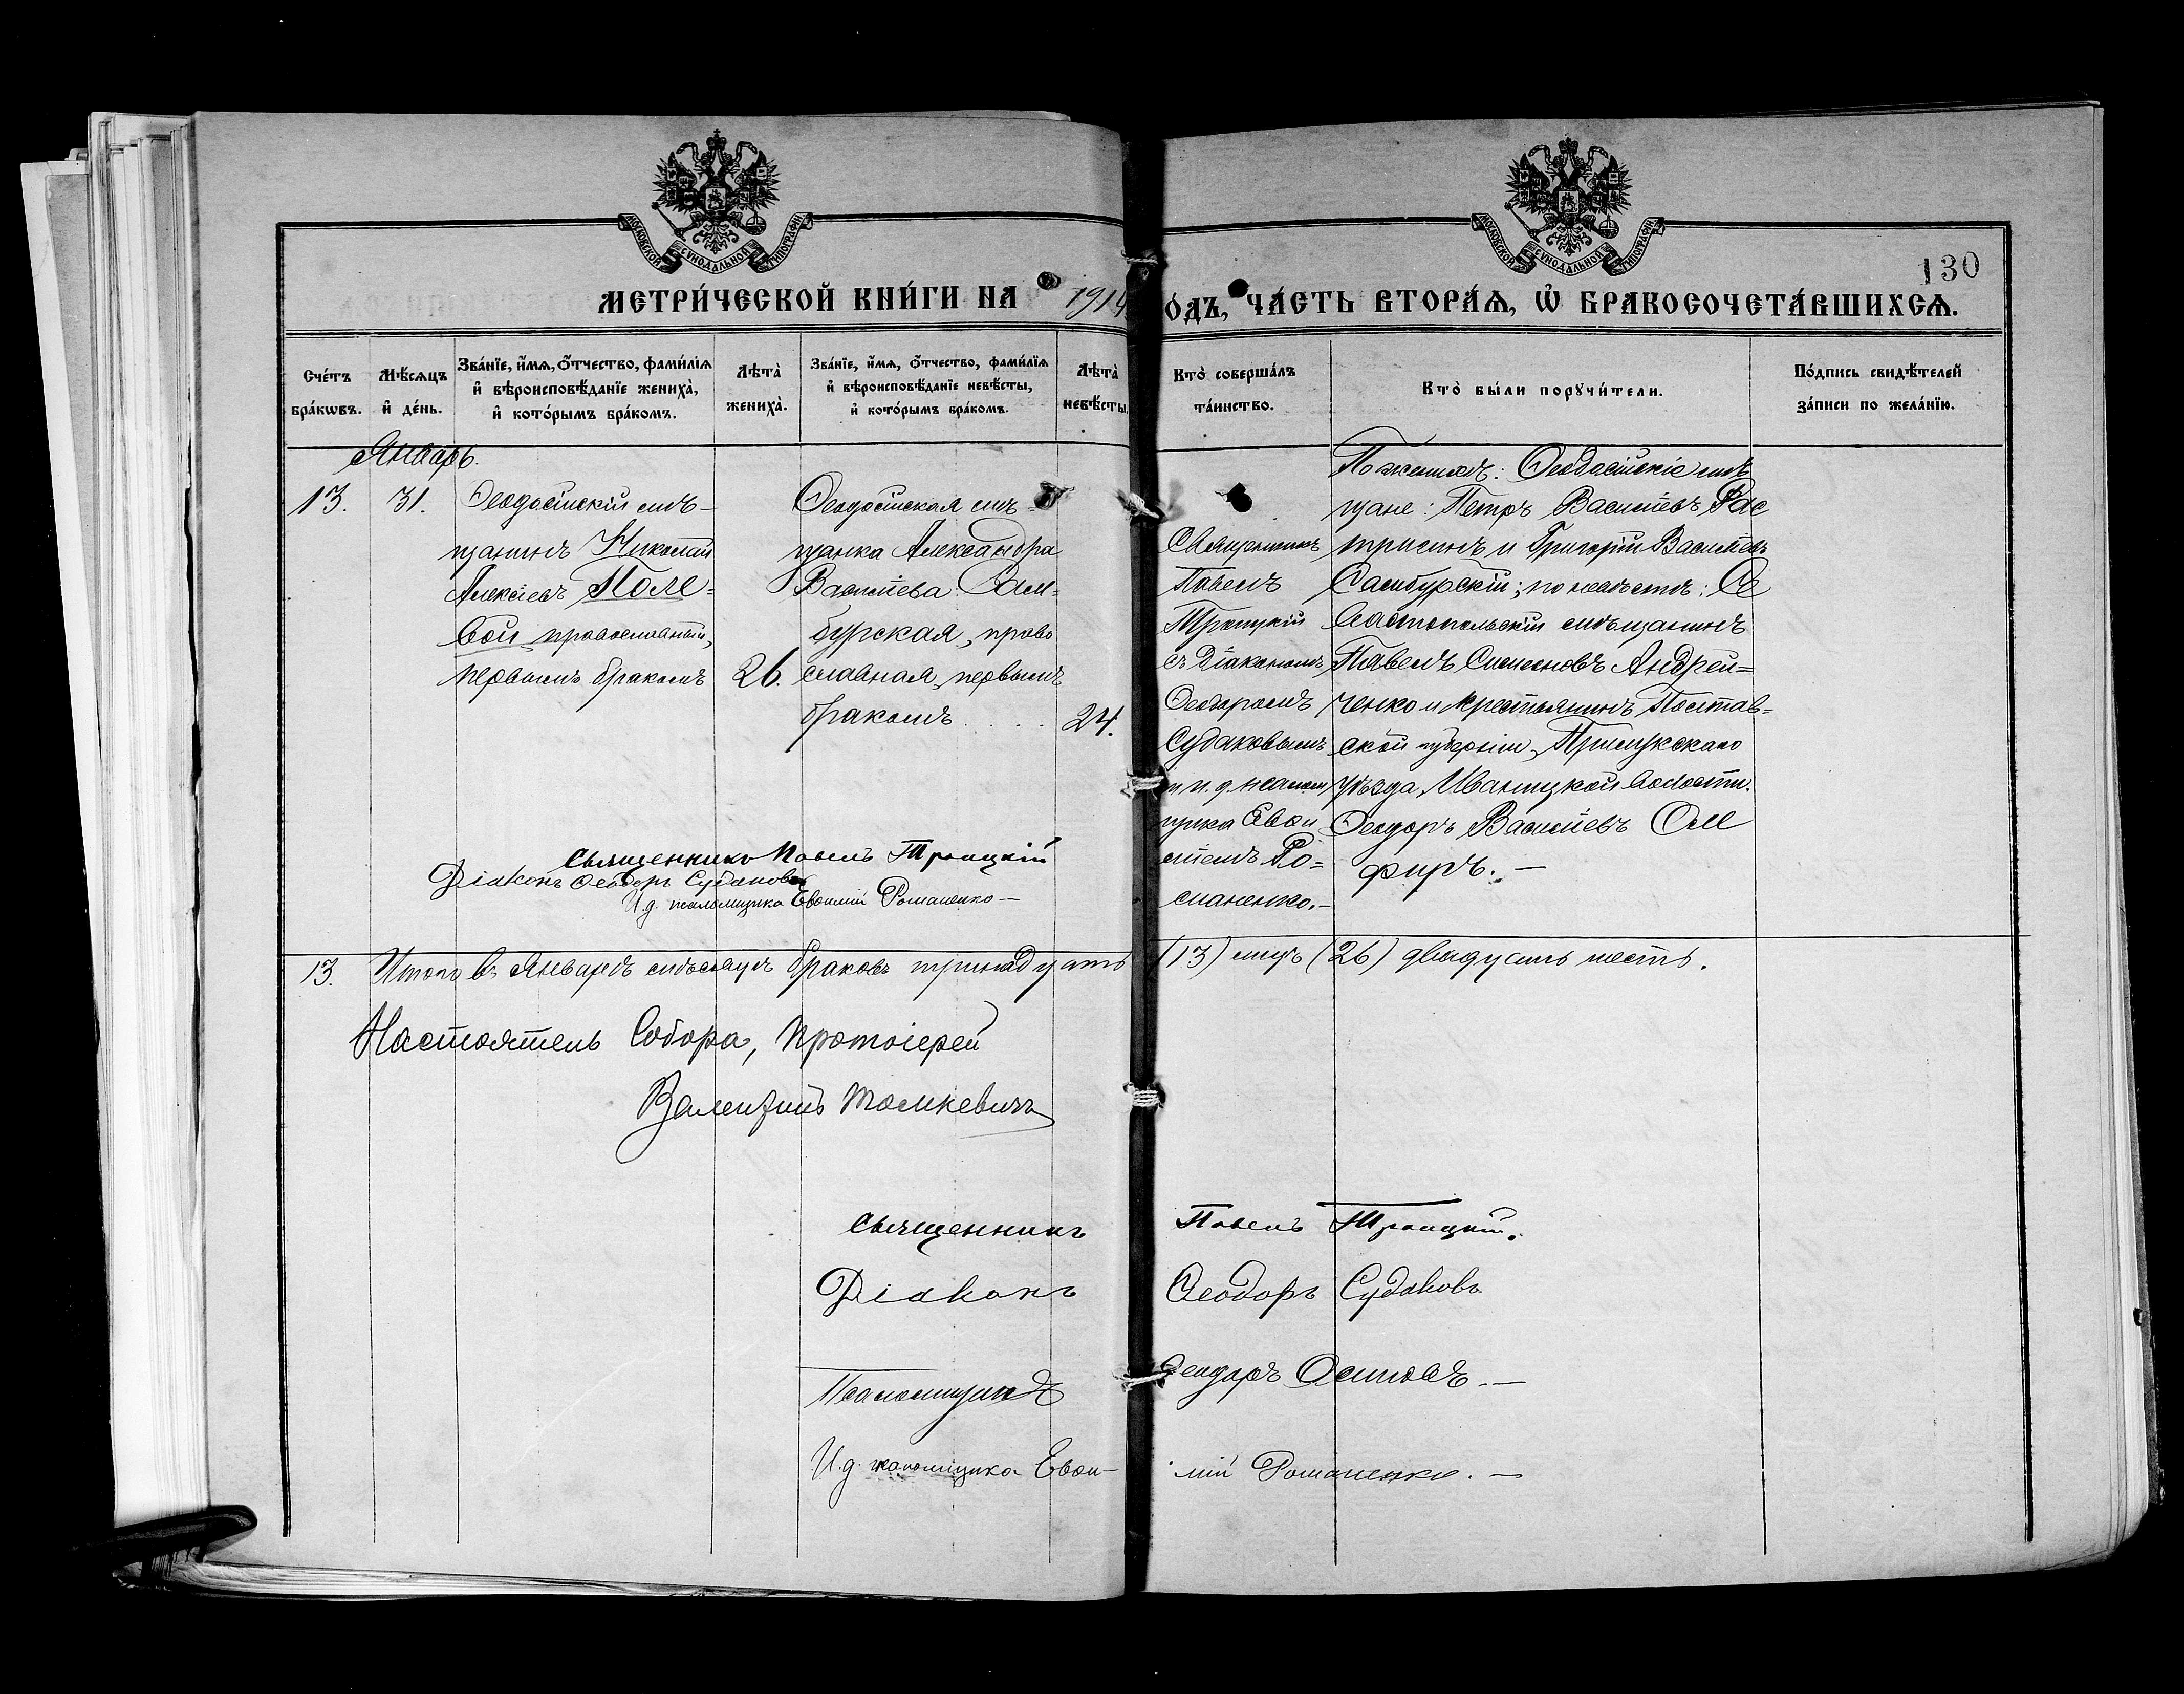 МОСКОВСКОЙ СѴНОДАЛЬНОЙ ТИПОГРАФІИ
МОСКОВСКОЙ СѴНОДАЛЬНОЙ ТИПОГРАФІИ
130
МЕТРИ́ЧЕСКОЙ КНИ́ГИ НА 1914
О́ДЪ, ЧА́СТЬ ВТОРА́Ѧ, Ѽ БРАКОСОЧЕТА́ВШИХСѦ.
Сче́тъ бра́кѡвъ.
Мѣ́сяцъ и҆ де́нь.
Зва́нїе, и҆́мѧ, ѻ҆́тчество, фами́лїѧ
и҆ вѣроисповѣ́данїе жениха̀,
и҆ кото́рымъ бра́комъ.
Лѣ́та̀ жениха̀.
Зва́нїе, и҆́мѧ, ѻ҆́тчество, фами́лїѧ
и҆ вѣроисповѣ́данїе невѣ́сты,
и҆ кото́рымъ бра́комъ.
Лѣ́та̀ невѣ́сты.
Кто̀ соверша́лъ
та́инство.
Кто̀ бы́ли порꙋчи́тели.
По́дпись свидѣ́телей
за́писи по жела́нїю.
Январь.
13. 31.
Ѳеодосійскій мѣ-
щанинъ Николай
Алексіевъ Поле=
вой, православный,
первымъ бракомъ
26.
Ѳеодосійская мѣ-
щанка Александра
Васильева Сам-
бурская, право
славная, первымъ
бракомъ . . . .
24.
Священникъ
Павелъ
Троицкій
съ Діакономъ
Ѳеодоромъ
Судаковымъ
и и. д. псалом
щика Евѳи
міемъ Ро=
маненко.-
По женихѣ: Ѳеодосійскіе мѣ
щане: Петръ Васильевъ Рас
тригинъ и Григорій Васильевъ
Самбурскій; по невѣстѣ: Се
вастопольскій мѣщанинъ
Павелъ Симеоновъ Андрей=
ченко и крестьянинъ Полтав=
ской губерніи, Прилукскаго
уѣзда, Иваницкой волости.
Ѳеодоръ Васильевъ Оле
фиръ. —
Священникъ Павелъ Троицкій
Діаконъ Ѳеодоръ Судаковъ
И.д. псаломщика Евѳимій Романенко —
13. Итого въ Январѣ мѣсяцѣ браковъ тринадцать (13) лицъ (26) двадцать шесть.
Настоятель Собора, Протоіерей
Валентинъ Томкевичъ
Священникъ Павелъ Троицкій.
Діаконъ Ѳеодоръ Судаковъ
Псаломщикъ Ѳеодоръ Осиповъ. —
И.д. псаломщика Евѳи- мій Романенко. —